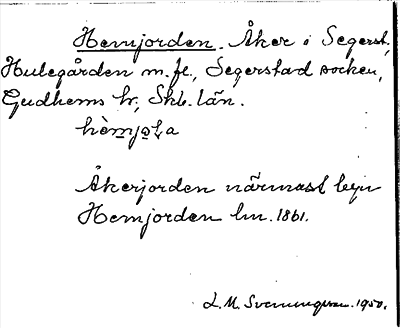 Hemjorden. Åker i Segerst.,
Hulegården m.fl., Segerstad socken,
Gudhems hr, Skb. län.
Åkerjorden närmast byn
Hemjorden lm. 1861.
L. M. Svenungsson. 1950.